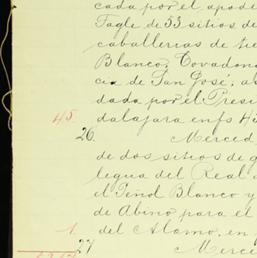 cada por el apode
Tagle de 33 sitios de
caballerias de tie
Blanco, Covadon
cia de San José, a
dada por el Presi
45 dalajara en fs 4
26. Merced
de dos sitios de g
legua del Real
el Peñol Blanco y
de Abino para el
1. del Alamo, en
27 Merce